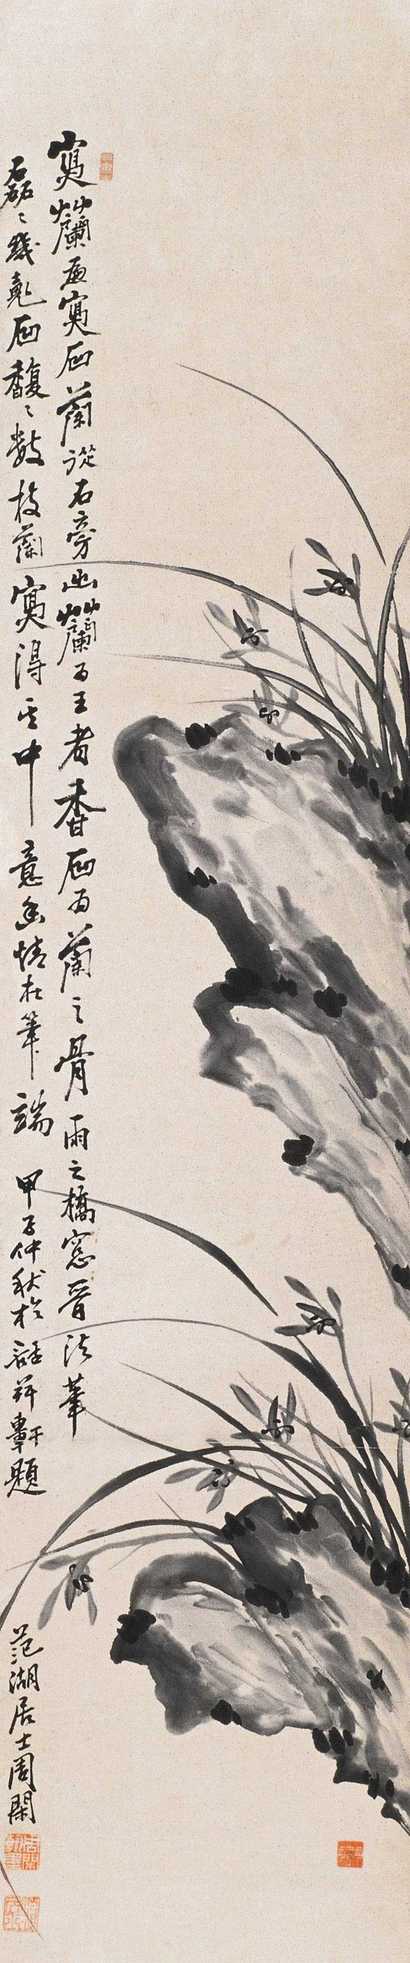 寫蘭兼寫石蘭從石旁出蘭為王者香石為蘭之骨雨之橋窓晉法筆
磊〻幾𠫵石馥〻數枝蘭寫得其中意幽情在筆端
甲子仲秋於話耕軒題
范湖居士周閑